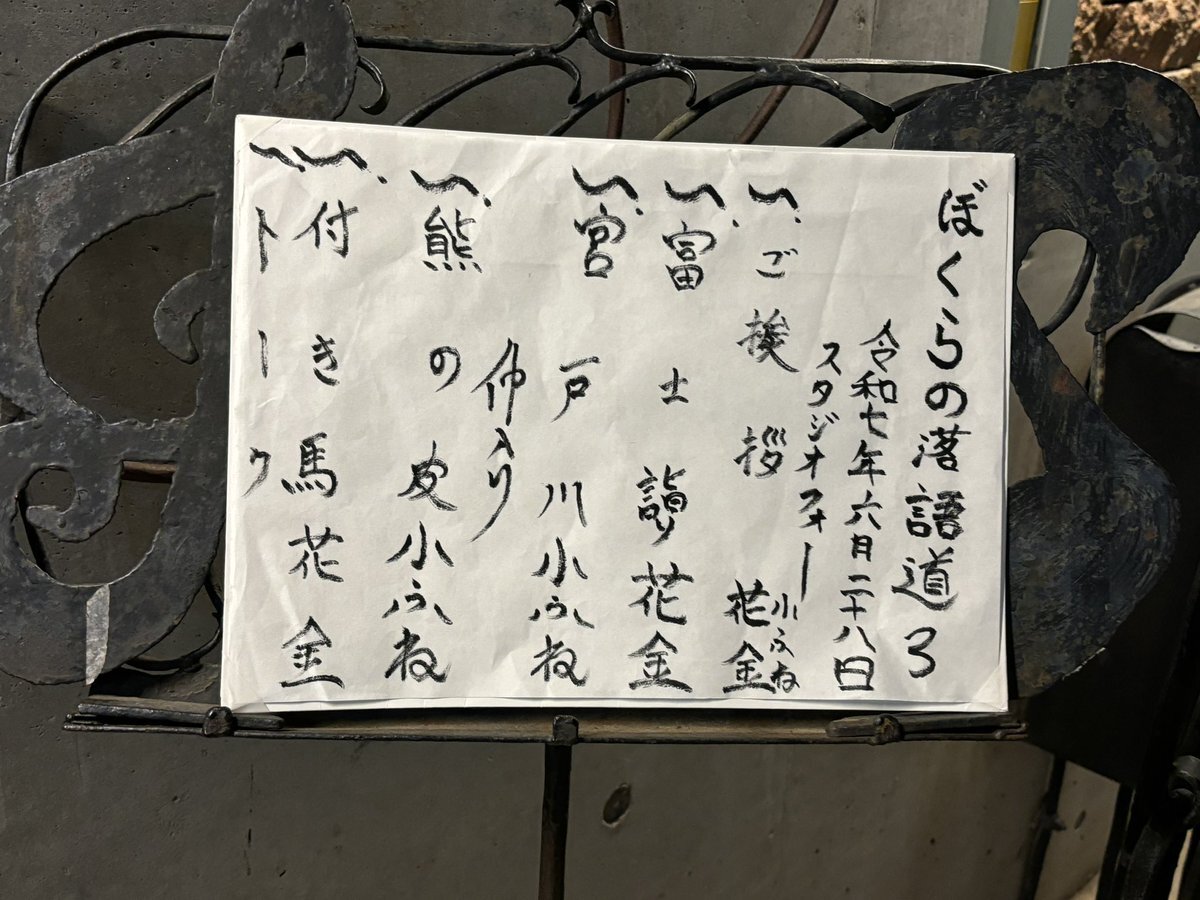 ぼくらの落語道3
令和七年六月二十八日
スタジオフォー
一、ご挨拶 小ふね 花金
一、富士詣り 花金
一、宮戸川 小ふね
仲入り
一、熊の皮 小ふね
一、付き馬 花金
一、トーク